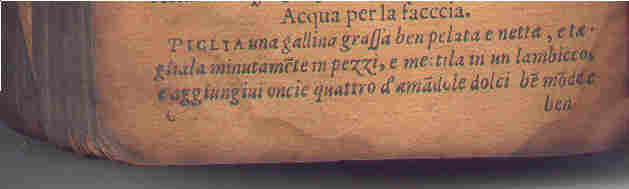 Acqua per la facccia.
PIGLIA una gallina graſſa ben pelata e netta, e ta-
gliala minutamẽte in pezzi, e mettila in un lambicco,
e aggiungiui oncie quattro d'amãdole dolci bẽ mõdee
ben